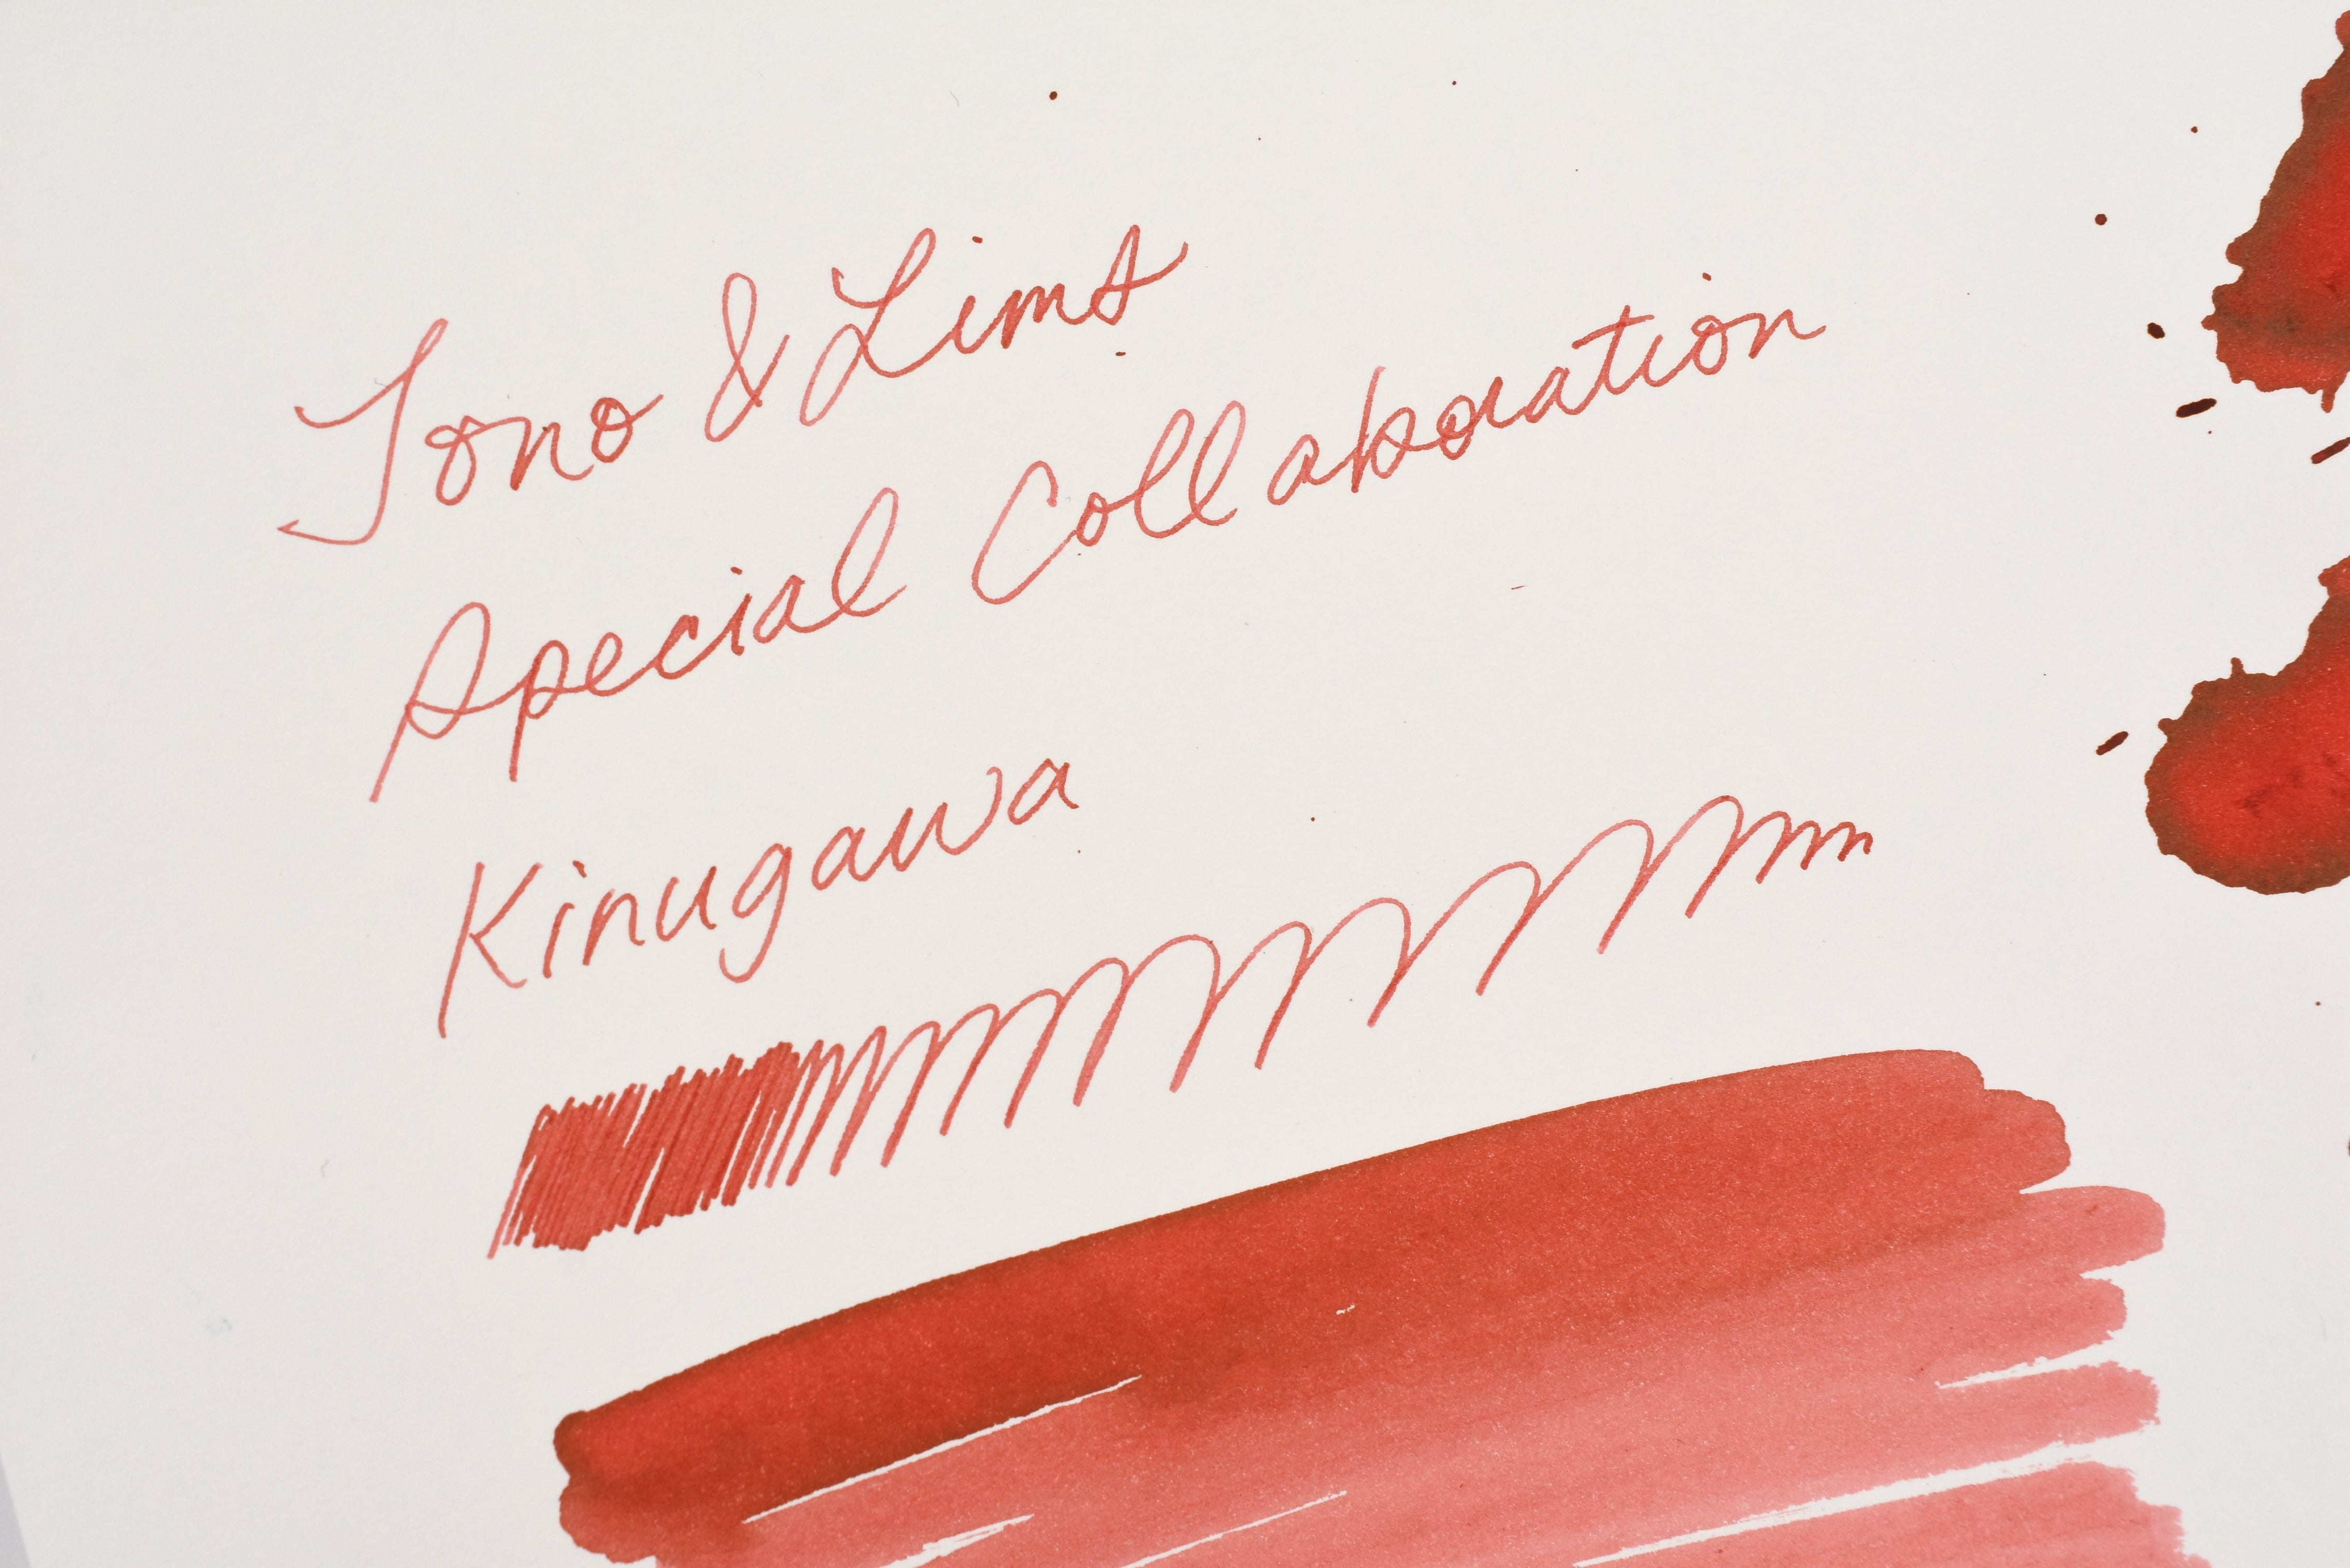 Tono & Lims
Special Collaboration
Kinugawa